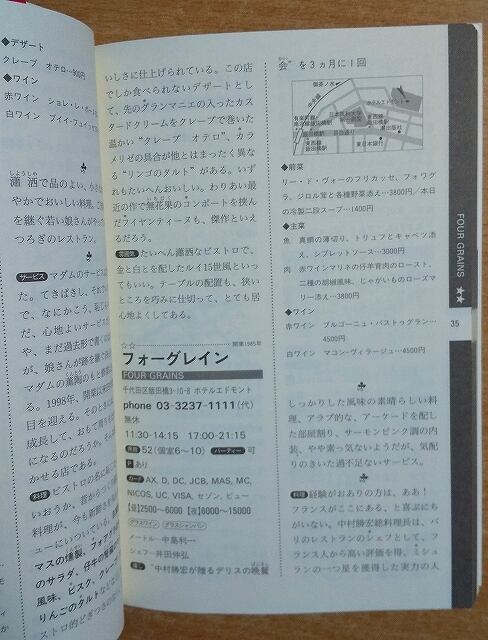 ◆デザート
クレープ オテロ…900円
◆ワイン
赤ワイン ショレ・レ・ボー
白ワイン プイイ・フュイッセ
♣
瀟洒で品のよい、小さな
やかでおいしい料理、ご
を継ぐ若い娘さんがやっ
つろぎのレストラン。
サービス マダムのサービスは
た。てきぱきし、それで
で、なにかこう、恥じら
だ、心地よいサービスだ
や、まだ過去形で書くの
が、娘さんが跡を継ぐ
マダムの薫陶のもと修業
る。1998年、開業は
目を迎える。そのときに
成長して、おもて周りを
になるのだろうか。そ
かせる店である。
料理 ビストロの名に恥じ
いおうか、昔からつくり
料理が、今も新鮮さを
ューにいついている。
マスの燻製、フォアグラ
のサラダ、仔牛の腎臓
風味、ビスク、クレープ
りんごのタルトなど
ストロ的どぎつさの
いしさに仕上げられている。この店
でしか食べられないデザートとし
て、先のグランマニエの入ったカス
タードクリームをクレープで巻いた
温かい“クレープ オテロ”、カラ
メリゼの具合が他とはまったく異な
る“リンゴのタルト”がある。いず
れもたいへんおいしい。わりあい最
近の作で無花果のコンポートを挟ん
だフイヤンティーヌも、傑作といえ
るだろう。
雰囲気 たいへん瀟洒なビストロで、
金と白とを配したルイ15世風といっ
てもいい。テーブルの配置も、狭い
ところを巧みに仕切って、とても居
心地よくしてある。
☆☆ 開業1985年
フォーグレイン
FOUR GRAINS
千代田区飯田橋3-10-8 ホテルエドモント
phone 03-3237-1111(代)
無休
11:30-14:15 17:00-21:15
席数 52(個室6~10) パーティー 可
P あり
カード AX, D, DC, JCB, MAS, MC,
NICOS, UC, VISA, セゾン, ビュー
【昼】2500~6000 【夜】6000~15000
グラスワイン グラスシャンパン
メートル―中島利一
シェフ―井田伸弘
催し “中村勝宏が贈るデリスの晩餐
会”を3ヵ月に1回
御茶ノ水
中央線
ホテルエドモント
目白通り
東日本銀行
◆前菜
リー・ド・ヴォーのフリカッセ、フォワグ
ラ、ジロル茸と各種野菜添え…3800円/本日
の冷製二段スープ…1400円
◆主菜
魚 真鯛の薄切り、トリュフとキャベツ添
え、シブレットソース…3000円
肉 赤ワインマリネの仔羊背肉のロースト、
二種の胡椒風味、じゃがいものローズマ
リー添え…3800円
◆ワイン
赤ワイン ブルゴーニュ・パストゥグラン…
4500円
白ワイン マコン・ヴィラージュ…4500円
♣
しっかりした風味の素晴らしい料
理、アラブ的な、アーケードを配し
た部屋割り、サーモンピンク調の内
装、やや素っ気ないようだが、気配
りのきいた過不足ないサービス。
♣
料理 経験がおありの方は、ああ!
フランスがここにある、と喜ぶにち
がいない。中村勝宏総料理長は、パ
リのレストランのシェフとして、フ
ランス人から高い評価を得、ミシュ
ランの一つ星を獲得した実力の人
FOUR GRAINS ★★
35